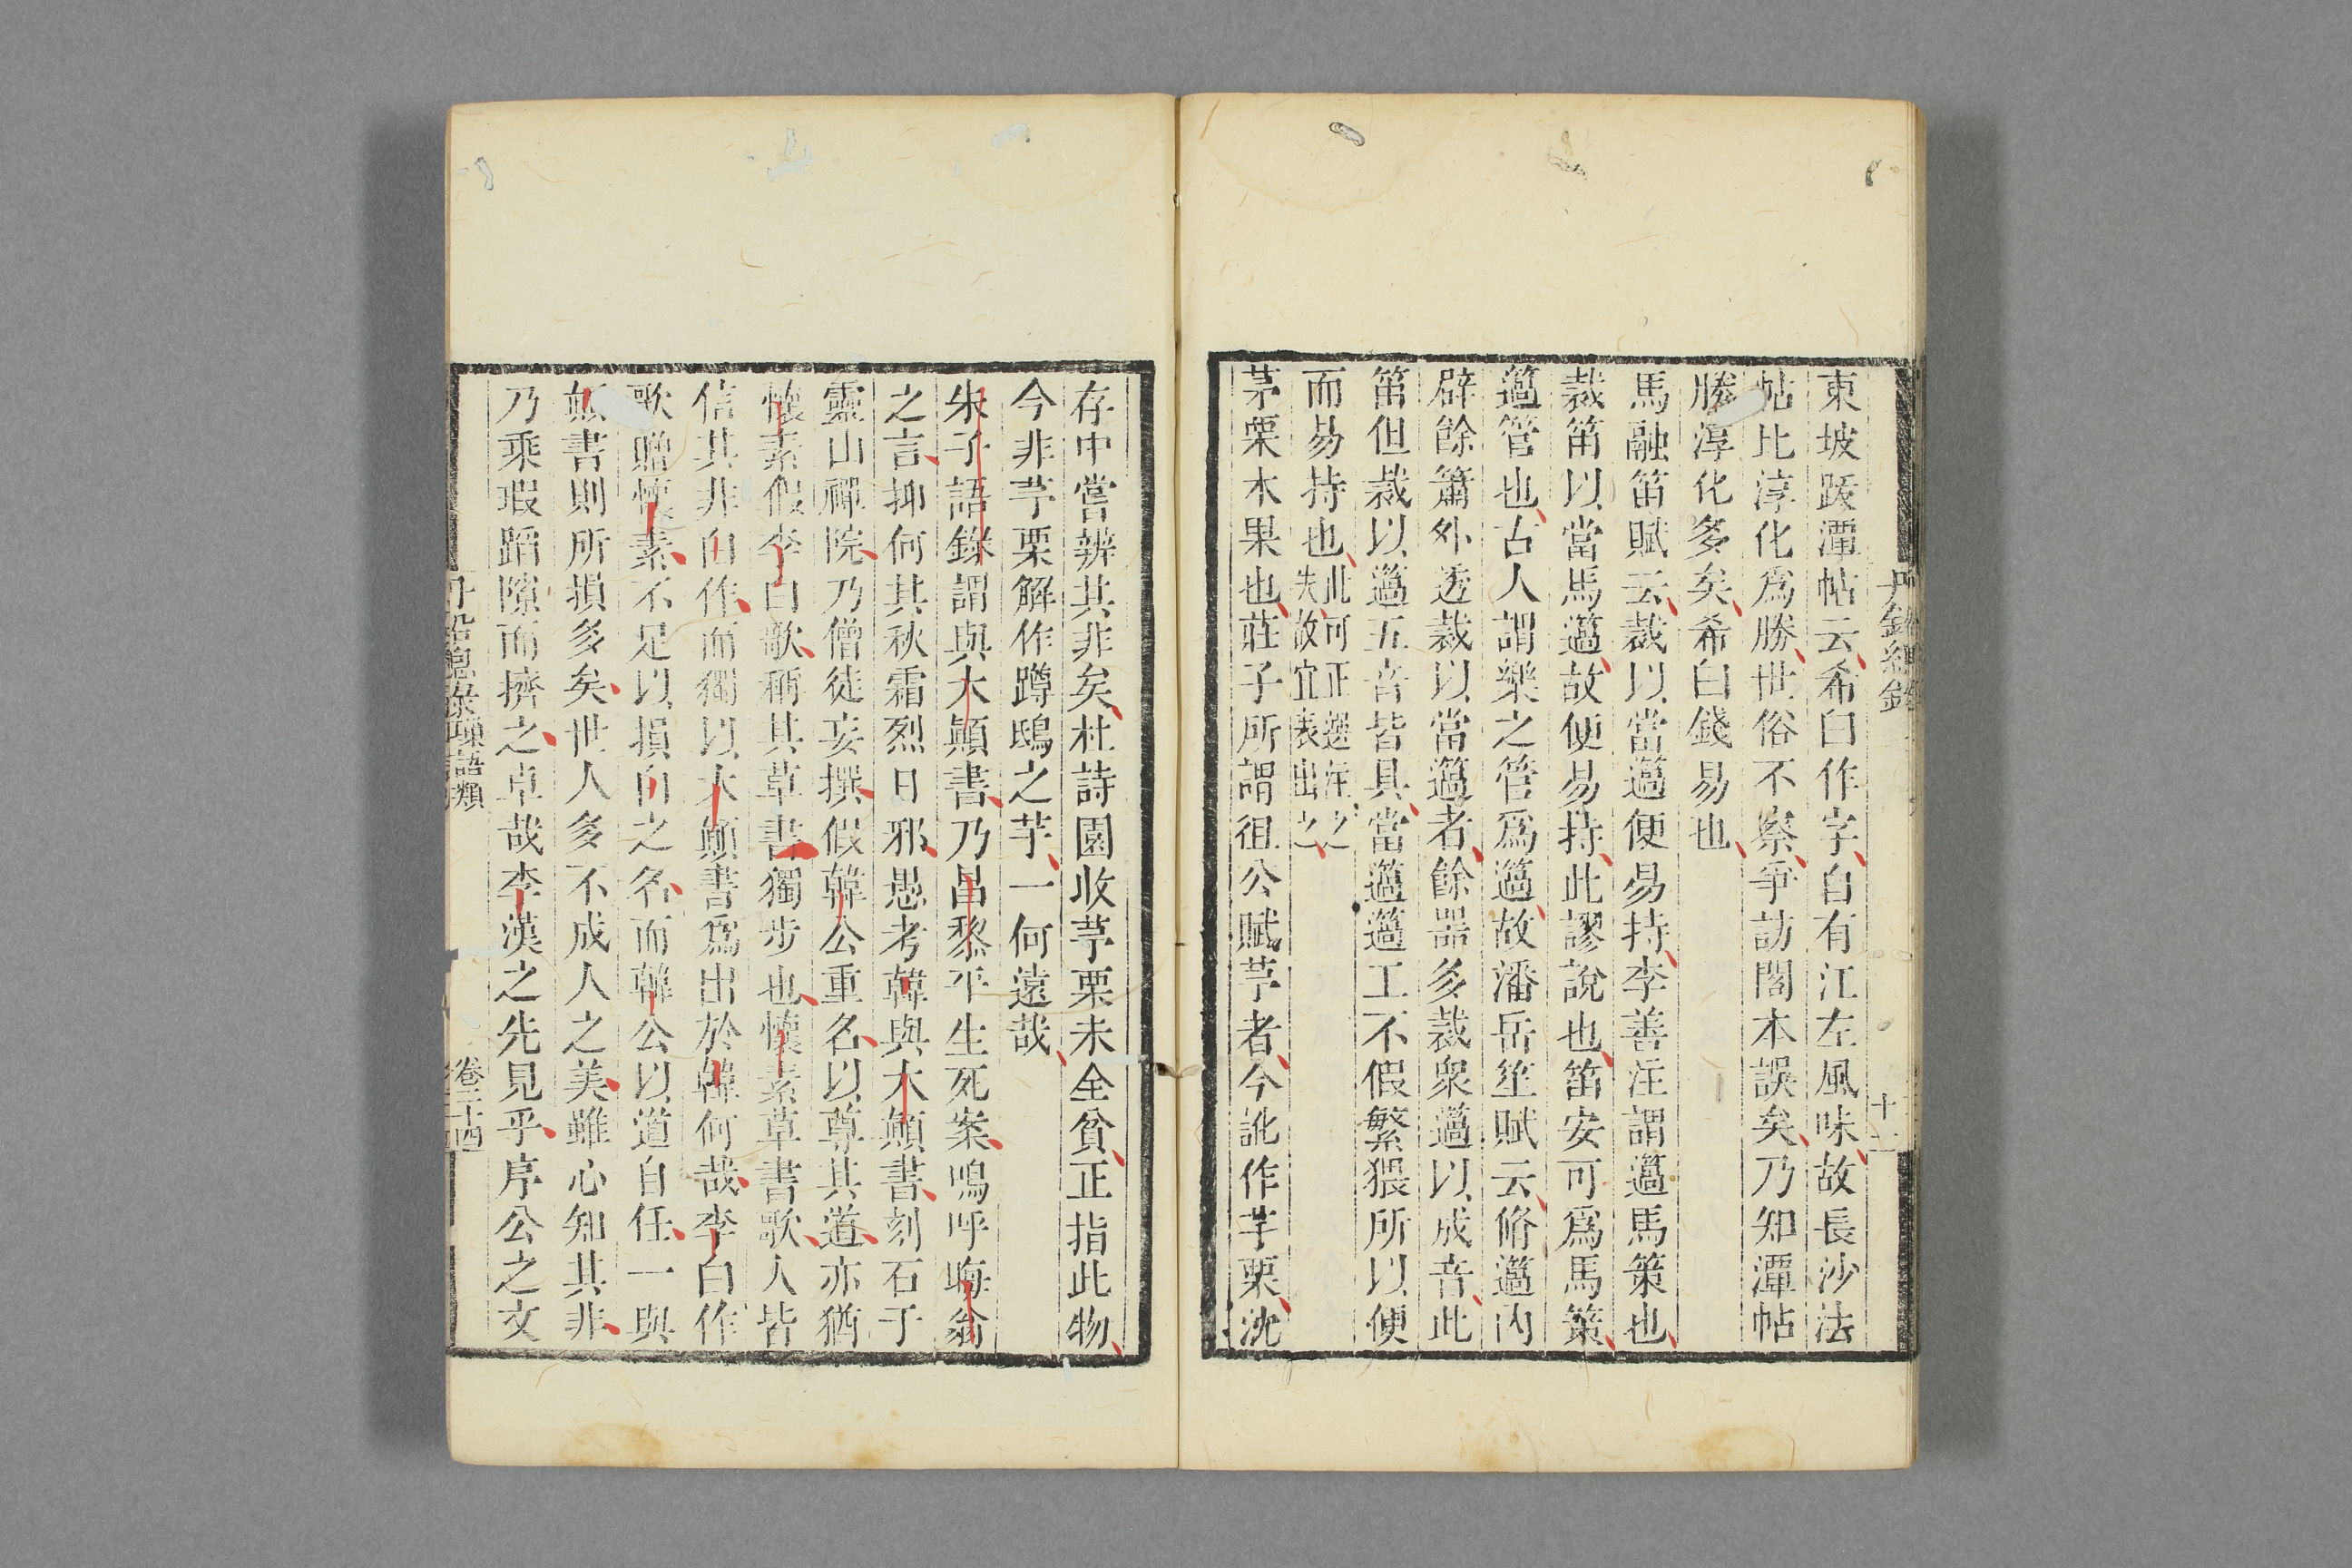 東坡䟦潭帖云希白作字自有江左風味故長沙法
帖比淳化爲勝世俗不察爭訪閣本誤矣乃知潭帖
勝淳化多矣希白錢易也
馬融笛賦云裁以當簻便易持李善注謂簻馬策也
裁笛以當馬簻故便易持此謬說也笛安可爲馬策
簻管也古人謂樂之管爲簻故潘岳笙賦云脩簻內
辟餘簫外透裁以當簻者餘器多裁衆簻以成音此
笛但裁以簻五音皆具當簻簻工不假繁猥所以便
而易持也此可正選注之失故宜表出之
茅栗木果也莊子所謂徂公賦芧者今訛作芋栗沈
存中嘗辨其非矣杜詩園收芋栗未全貧正指此物
今非芧栗解作蹲鴟之芋一何遠哉
朱子語錄謂與大顛書乃昌黎平生死案嗚呼晦翁
之言抑何其秋霜烈日邪愚考韓與大顛書刻石于
靈山禪院乃僧徒妄撰假韓公重名以尊其道亦猶
懷素假李白歌稱其草書獨步也懷素草書歌人皆
信其非白作而獨以大顛書爲出於韓何哉李白作
歌贈懷素不足以損白之名而韓公以道自任一與
顛書則所損多矣世人多不成人之美雖心知其非
乃乘瑕蹈隙而擠之卓哉李漢之先見乎序公之文
丹鉛總錄瑣語類
卷二十四